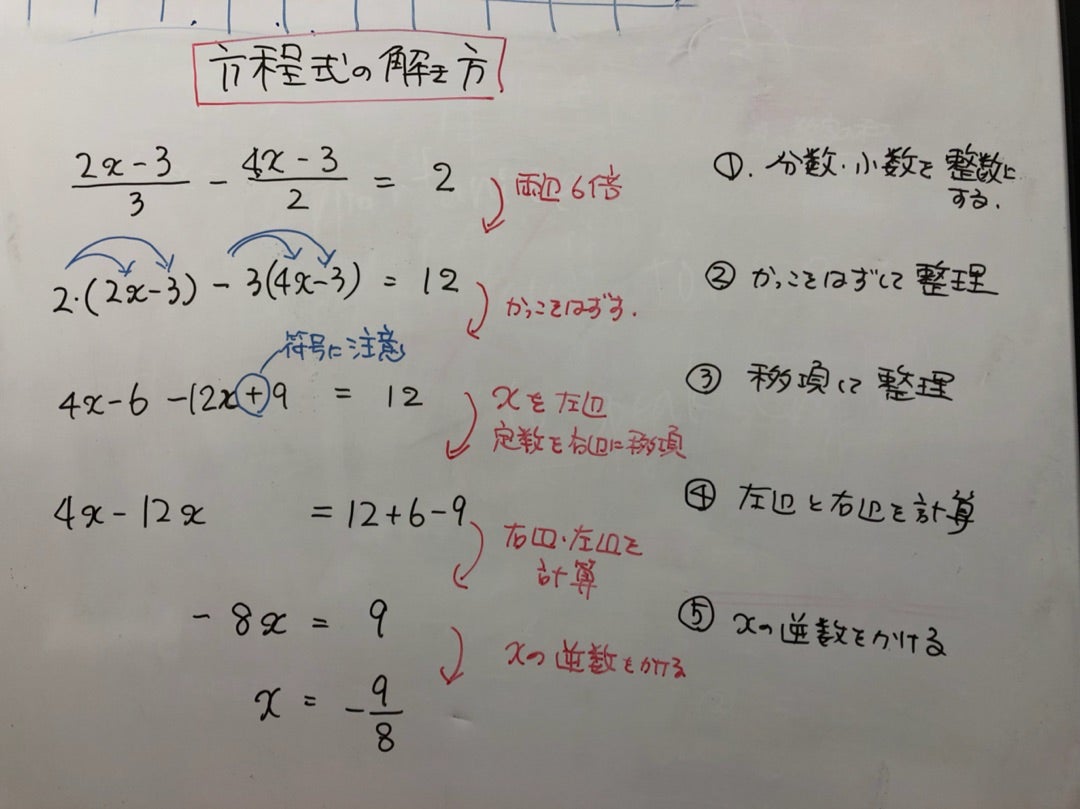 方程式の解き方
(2x-3)/3 - (4x-3)/2 = 2
両辺6倍
①. 分数・小数を整数に
する.
2・(2x-3) - 3(4x-3) = 12
かっこをはずす.
② かっこをはずして整理
符号に注意
4x-6 -12x+9 = 12
xを左辺
定数を右辺に移項
③ 移項して整理
4x-12x = 12+6-9
右辺・左辺を
計算
④ 左辺と右辺を計算
-8x = 9
xの逆数をかける
⑤ xの逆数をかける
x = -9/8